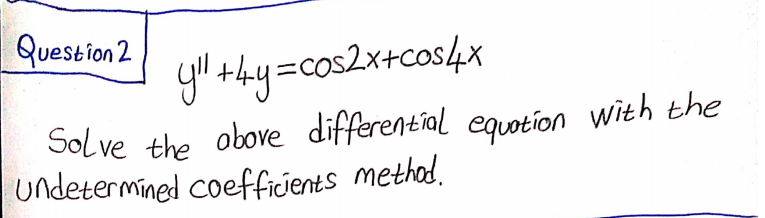 Question 2
y'' + 4y = cos2x + cos4x
Solve the above differential equation with the
undetermined coefficients method.